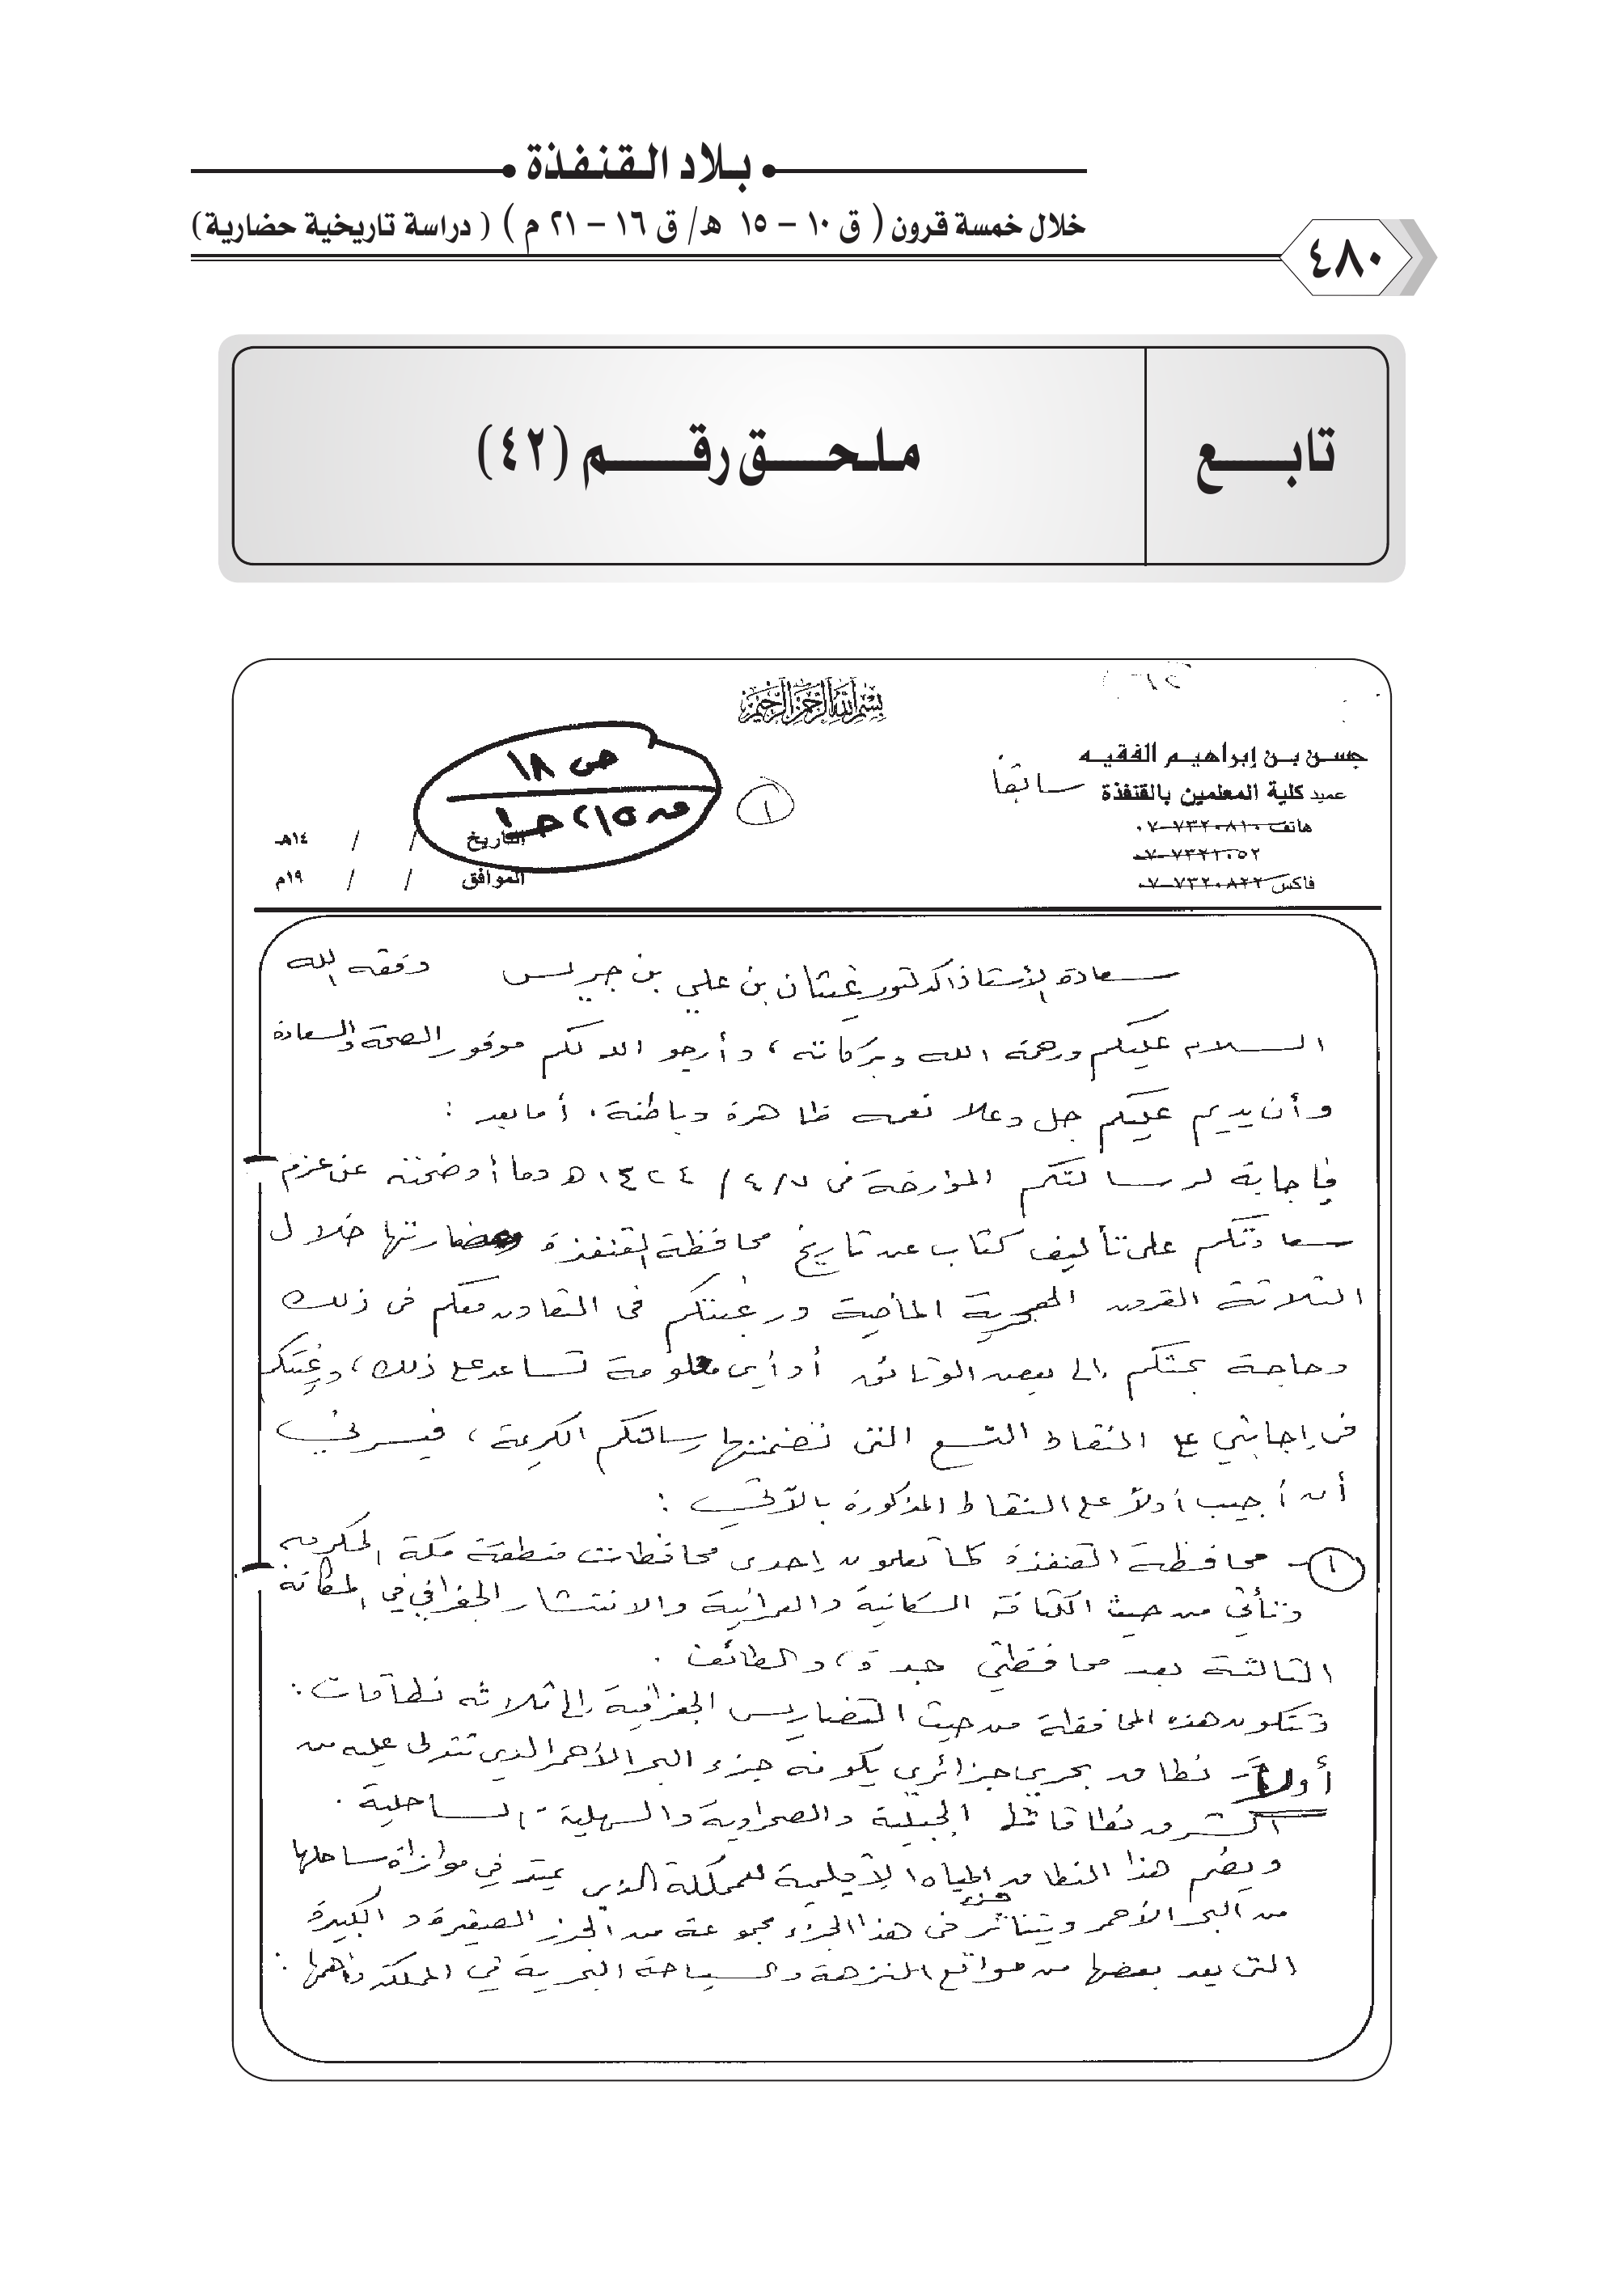 بلاد القنفذة
خلال خمسة قرون ( ق ١٠ – ١٥ هـ/ ق ١٦ – ٢١ م ) ( دراسة تاريخية حضارية)
٤٨٠
تابع
ملحق رقم (٤٢)
بسم الله الرحمن الرحيم
حسن بن إبراهيم الفقيه
عميد كلية المعلمين بالقنفذة سابقاً
هاتف ٧٣٢٠٨١٠-٠٧
٧٣٢١٠٥٢-٠٧
فاكس ٧٣٢٠٨٢٢-٠٧
١
ص ١٨
التاريخ / / ١٤هـ
الموافق / / ١٩م
سعادة الأستاذ الدكتور غيثان بن علي بن جريس وفقه الله
السلام عليكم ورحمة الله وبركاته ، وأرجو الله لكم موفور الصحة والسعادة
وأن يديم عليكم جل وعلا نعمه ظاهرة وباطنة . أما بعد :
فإجابة لرسالتكم المؤرخة في ٤/٧/ ١٤٢٤هـ وما أوضحته عن عزم
سعادتكم على تأليف كتاب عن تاريخ محافظة القنفذة وحضارتها خلال
الثلاثة القرون الهجرية الماضية ورغبتكم في التعاون معكم في ذلك
وحاجة بحثكم إلى بعض الوثائق أو أي معلومة تساعد على ذلك ، ورغبتكم
في إجابتي على النقاط التسع التي تضمنتها رسالتكم الكريمة ، فيسرني
أن أجيب أولاً على النقاط المذكورة بالآتي :
١- محافظة القنفذة كما تعلمون إحدى محافظات منطقة مكة المكرمة
وتأتي من حيث الكثافة السكانية والعمرانية والانتشار الجغرافي في المكانة
الثالثة بعد محافظتي جدة ، والطائف .
وتتكون هذه المحافظة من حيث التضاريس الجغرافية إلى ثلاثة نطاقات :
أولاً - نطاق بحري جزائري يكونه جزء البحر الأحمر الذي تتدلى عليه من
الشرق نطاقاتها الجبلية والصحراوية والسهلية - الساحلية .
ويضم هذا النطاق جزء المياه الإقليمية للمملكة الذي يمتد في موازاة ساحلها
من البحر الأحمر ويتناثر في هذا الجزء مجموعة من الجزر الصغيرة والكبيرة
التي يعد بعضها من مواقع النزهة والسياحة البحرية في المملكة وأهمها :